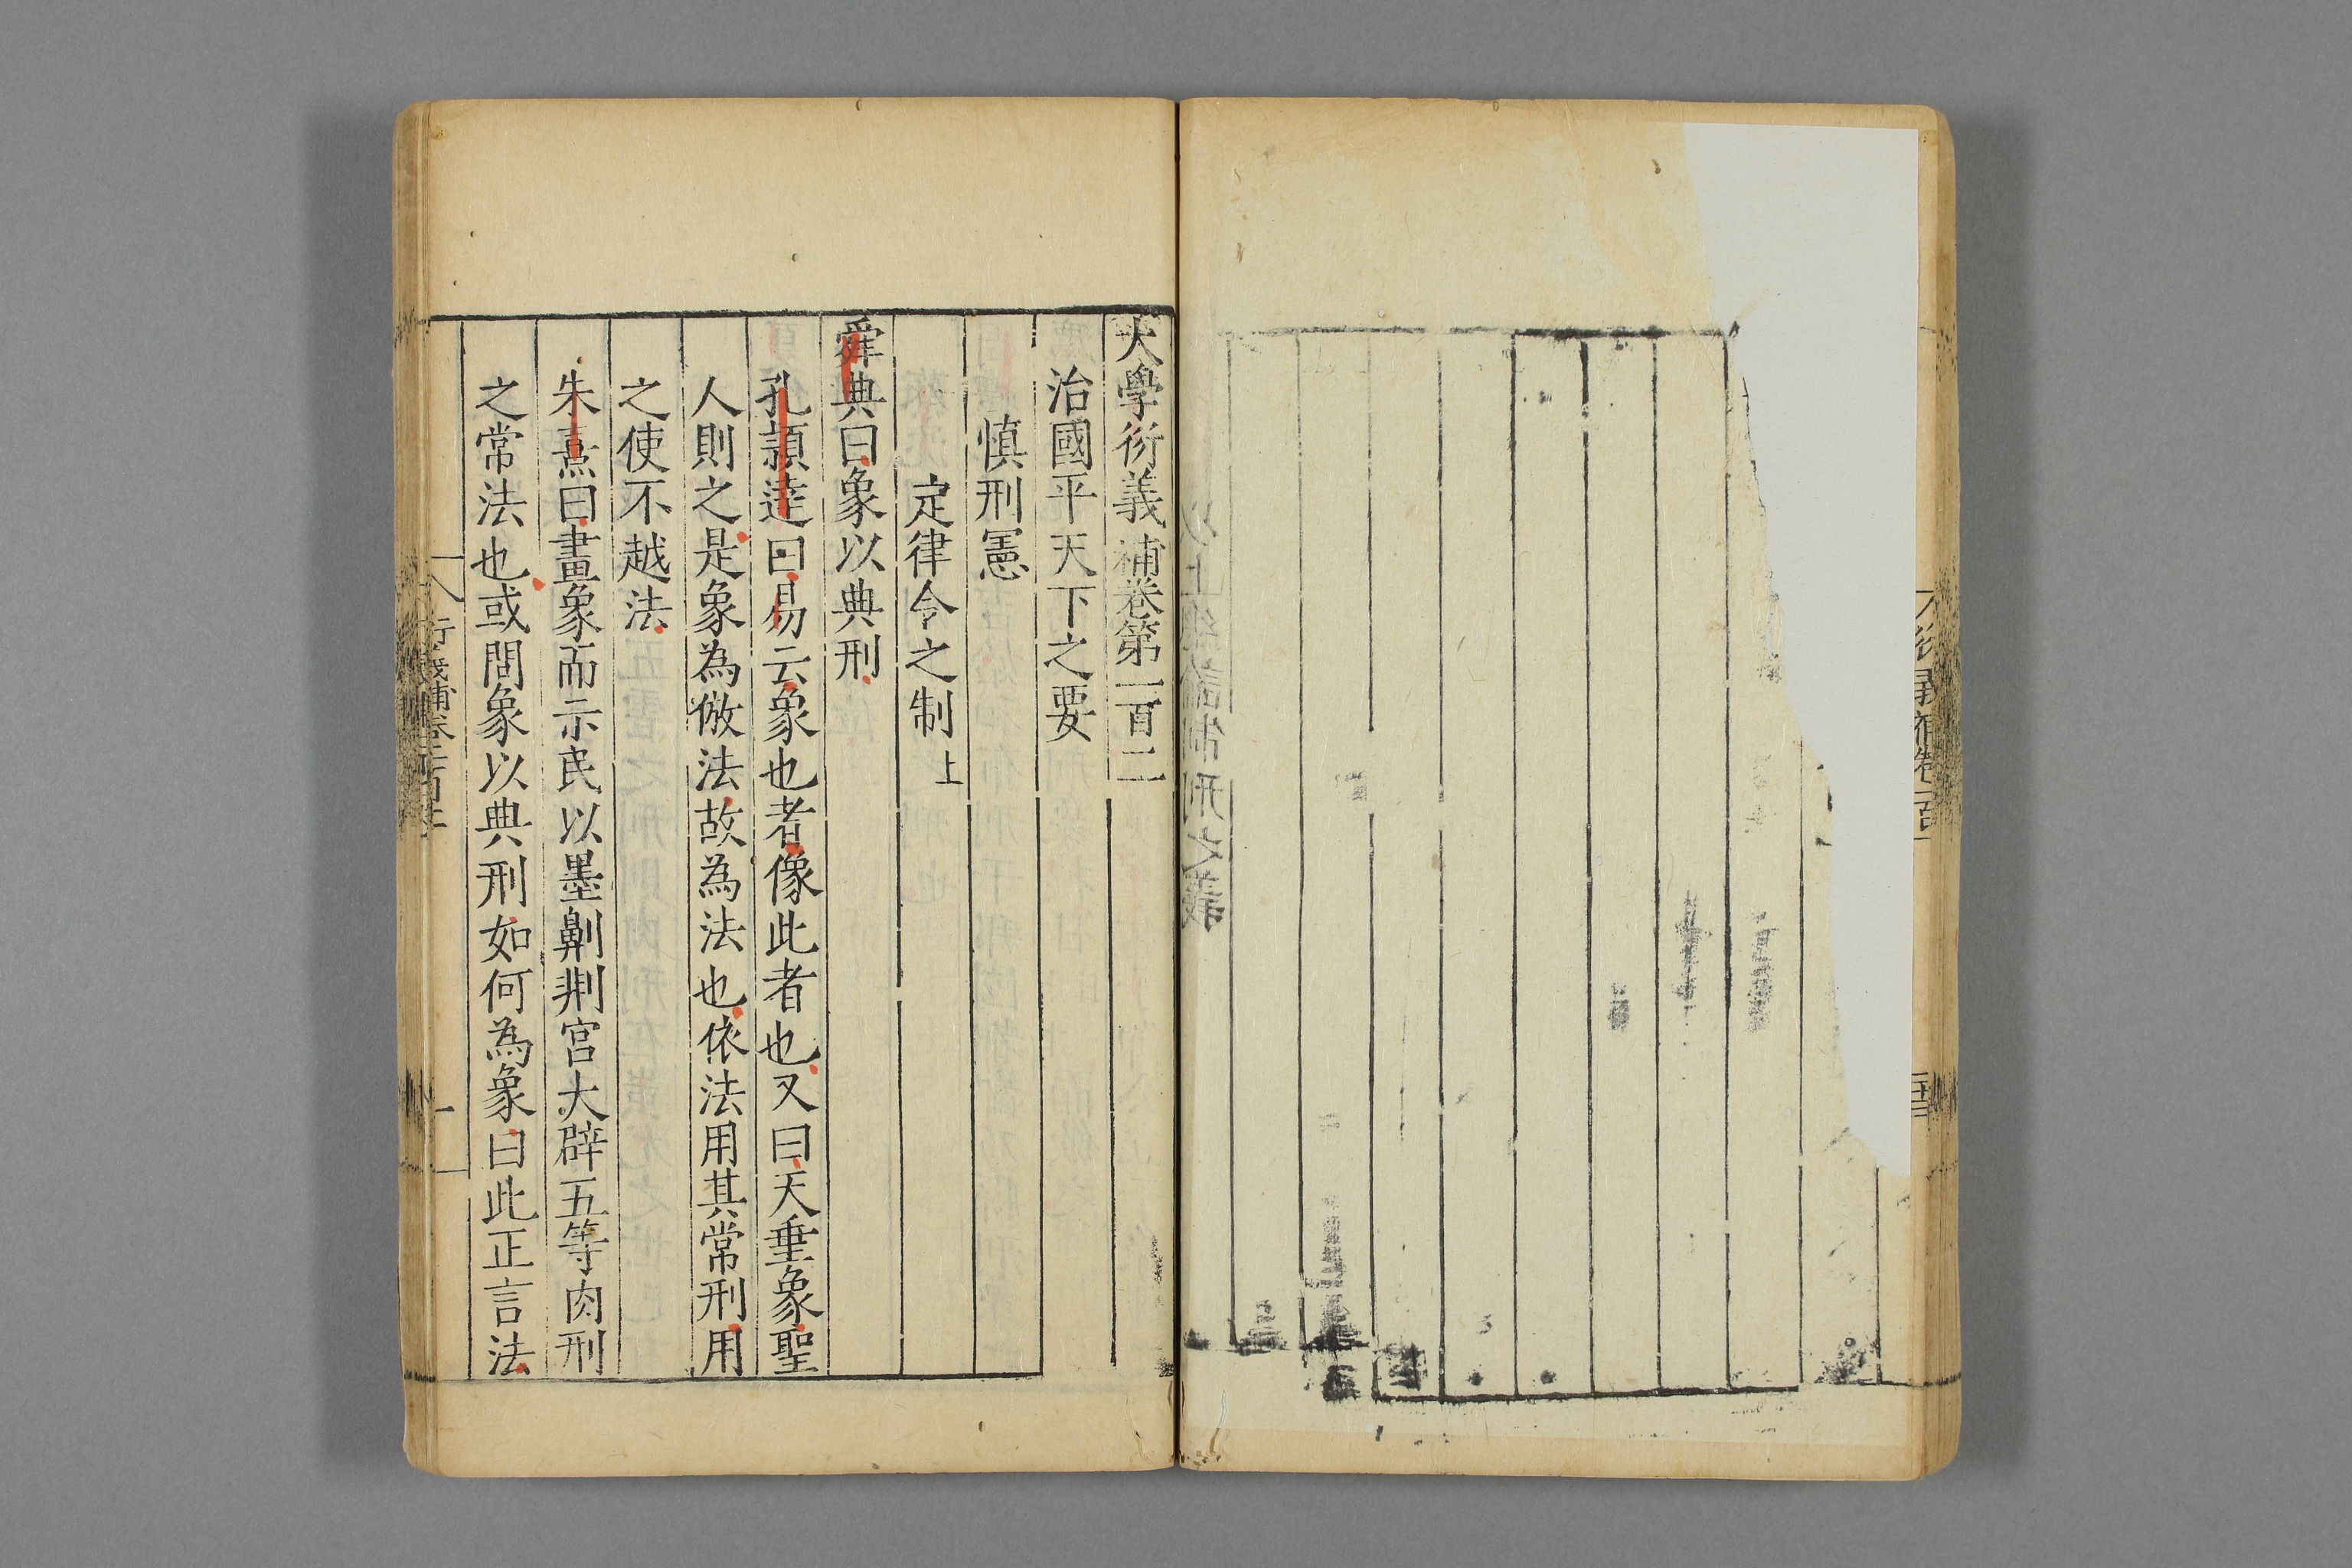 大學衍義補卷第一百二
治國平天下之要
慎刑憲
定律令之制上
舜典曰象以典刑
孔穎達曰易云象也者像此者也又曰天垂象聖
人則之是象為倣法故為法也依法用其常刑用
之使不越法
朱熹曰畫象而示民以墨劓剕宮大辟五等肉刑
之常法也或問象以典刑如何為象曰此正言法